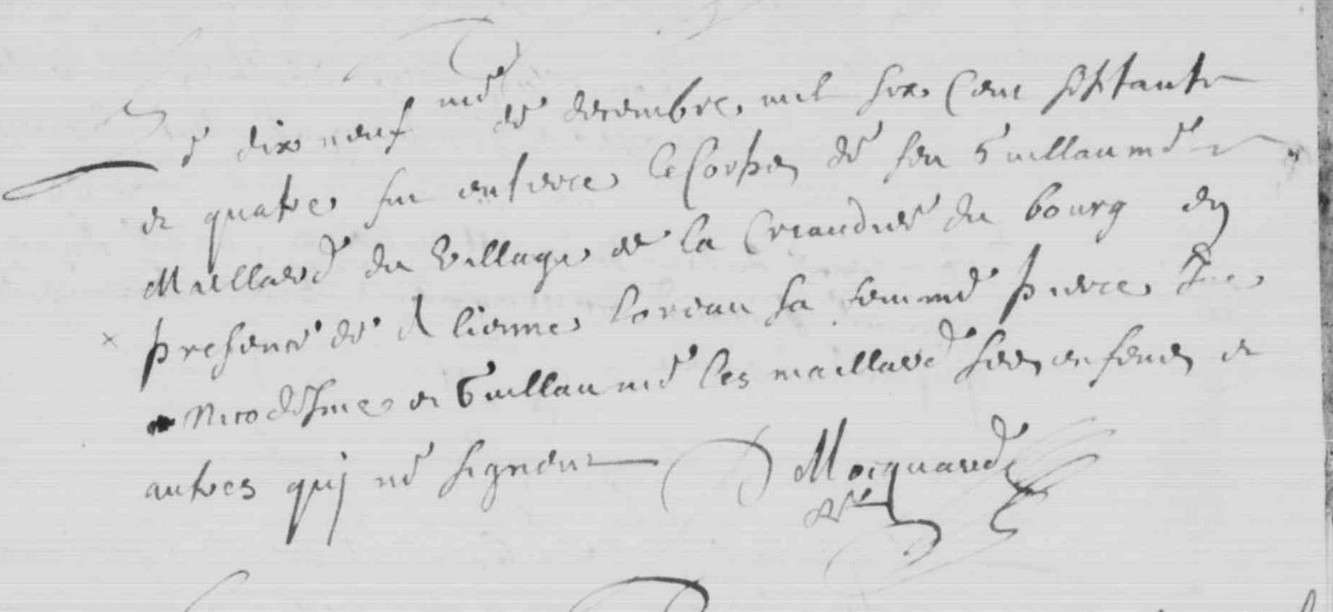 Le dix neufme de decembre mil six cent septante
et quatre fut enterre le corps de feu Guillaume
Maillard du village de la Criaudiere du bourg en
presence de Loreau sa femme pierre
Nicodesme et Guillaume les maillard ses enfens et
autres qui ne signent D Mocquard